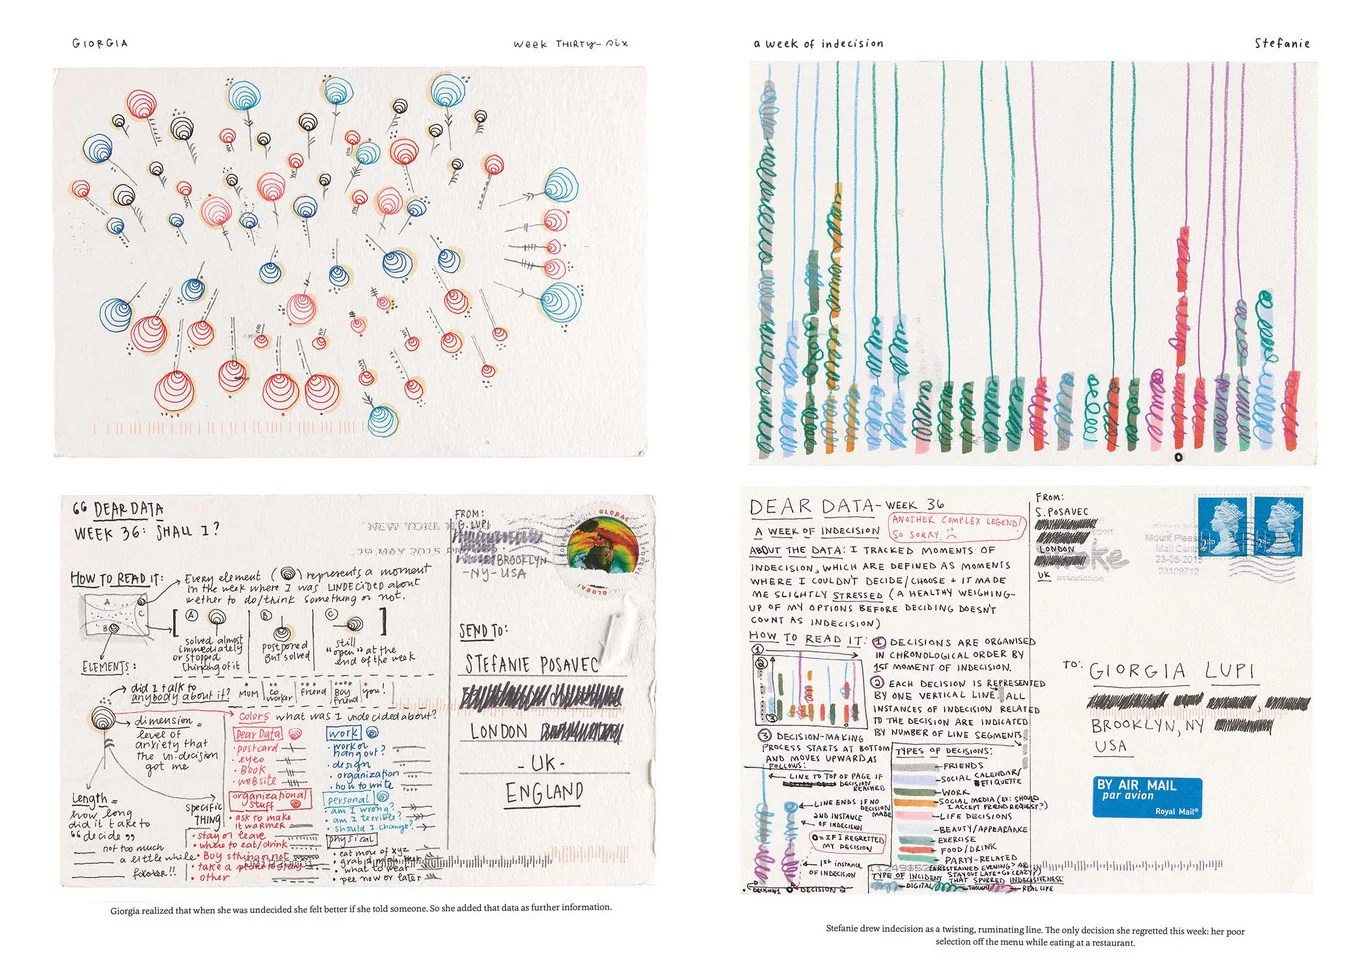 GIORGIA
WEEK THIRTY-SIX
a week of indecision
Stefanie
DEAR DATA
WEEK 36: SHALL I?
HOW TO READ IT:
Every element ( ) represents a moment
in the week where I was UNDECIDED about
wether to do/think something or not.
A
B
C
A
B
C
solved almost
immediately
or stopped
thinking of it
postponed
BUT solved
still
"open" at the
end of the week
ELEMENTS:
did I talk to
anybody about it?
MUM
CO
WORKER
friend
Boy
friend
you!
dimension =
level of
anxiety that
the un-decision
got me
Length =
how long
did it take to
"decide"
not too much
a little while
forever!!
specific
THING
colors
what was I undecided about?
Dear Data
postcard
video
BOOK
website
organizational
stuff
ask to make
it warmer
stay or leave
where to eat/drink
BUY sthing or not
other
work
work or
hang out?
design
organization
how to write
personal
am I wrong?
am I terrible?
should I change?
physical
eat more of xyz
what to wear
pee now or later
FROM:
G. LUPI
BROOKLYN
-NY-USA
NEW YORK
19 MAY 2015
GLOBAL
SEND TO:
STEFANIE POSAVEC
LONDON
-UK-
ENGLAND
Giorgia realized that when she was undecided she felt better if she told someone. So she added that data as further information.
DEAR DATA-WEEK 36
A WEEK OF INDECISION
ANOTHER COMPLEX LEGEND!
SO SORRY
ABOUT THE DATA: I TRACKED MOMENTS OF
INDECISION, WHICH ARE DEFINED AS MOMENTS
WHERE I COULDN'T DECIDE/CHOOSE + IT MADE
ME SLIGHTLY STRESSED (A HEALTHY WEIGHING-
UP OF MY OPTIONS BEFORE DECIDING DOESN'T
COUNT AS INDECISION)
HOW TO READ IT:
1 DECISIONS ARE ORGANISED
IN CHRONOLOGICAL ORDER BY
1ST MOMENT OF INDECISION.
2 EACH DECISION IS REPRESENTED
BY ONE VERTICAL LINE. ALL
INSTANCES OF INDECISION RELATED
TO THE DECISION ARE INDICATED
BY NUMBER OF LINE SEGMENTS.
3 DECISION-MAKING
PROCESS STARTS AT BOTTOM
AND MOVES UPWARDS AS
FOLLOWS:
LINE TO TOP OF PAGE IF
DECISION
REACHED
LINE ENDS IF NO
DECISION
MADE
2ND INSTANCE
OF INDECISION
O = IF I REGRETTED
MY DECISION
1ST INSTANCE
OF INDECISION
DECISION 1
DECISION 2
TYPES OF DECISIONS:
FRIENDS
SOCIAL CALENDAR/
ETIQUETTE
WORK
SOCIAL MEDIA (EX: SHOULD
I ACCEPT FRIEND REQUEST?)
LIFE DECISIONS
BEAUTY/APPEARANCE
EXERCISE
FOOD/DRINK
PARTY-RELATED
TYPE OF INCIDENT
THAT SPURRED INDECISIVENESS
DIGITAL
THOUGHT
REAL LIFE
FROM:
S. POSAVEC
LONDON
UK
Mount Pleasant
Mail Centre
23-05-2015
23109712
association
2ND
2ND
TO:
GIORGIA LUPI
BROOKLYN, NY
USA
BY AIR MAIL
par avion
Royal Mail
Stefanie drew indecision as a twisting, ruminating line. The only decision she regretted this week: her poor
selection off the menu while eating at a restaurant.